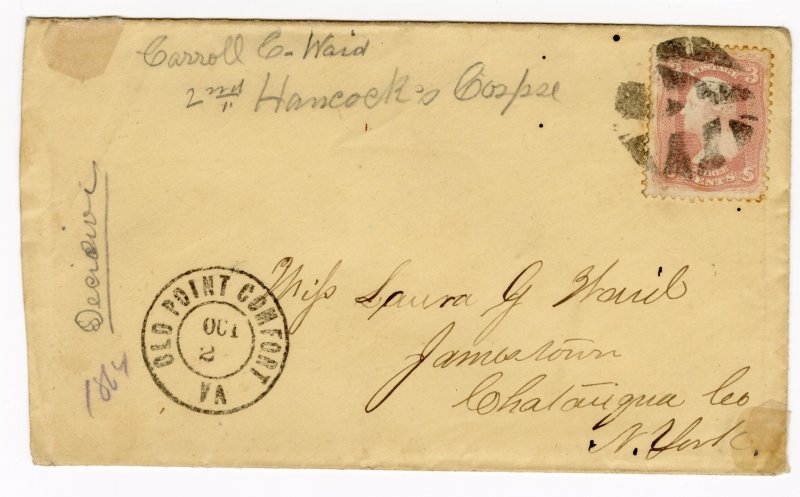 Carroll C. Waid
Hancock's Corpse
Decisive
1864
3
CENTS
OLD POINT COMFORT
OCT
2
VA
Miss Laura G Waid
Jamestown
Chatauqua Co
N. York.